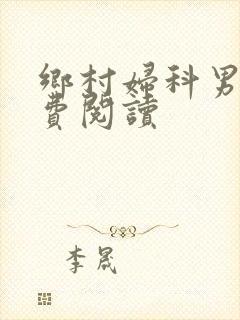 鄉村婦科男
費閱讀
李晟